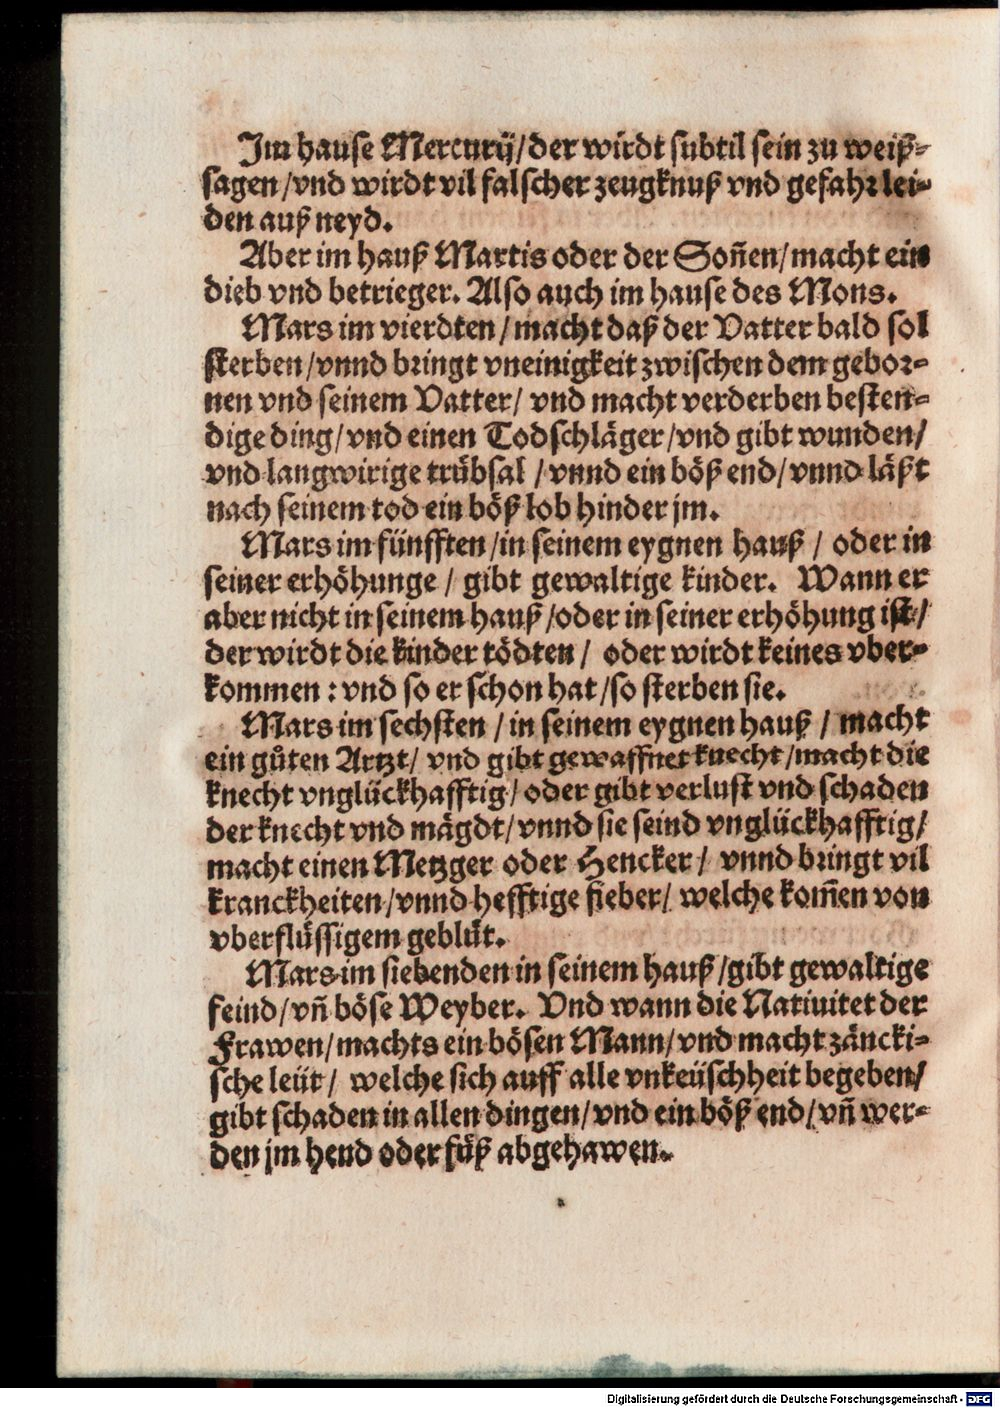 Im hause Mercurij/der wirdt subtil sein zu weiß-
sagen/vnd wirdt vil falscher zeugknuß vnd gefahr lei-
den auß neyd.
Aber im hauß Martis oder der Soñen/macht ein
dieb vnd betrieger. Also auch im hause des Mons.
Mars im vierdten/macht daß der Vatter bald sol
sterben/vnnd bringt vneinigkeit zwischen dem gebor-
nen vnd seinem Vatter/ vnd macht verderben besten-
dige ding/vnd einen Todschläger/vnd gibt wunden/
vnd langwirige trübsal /vnnd ein böß end/vnnd läßt
nach seinem tod ein böß lob hinder jm.
Mars im fünfften/in seinem eygnen hauß / oder in
seiner erhöhunge / gibt gewaltige kinder. Wann er
aber nicht in seinem hauß/oder in seiner erhöhung ist/
der wirdt die kinder tödten/ oder wirdt keines vber-
kommen : vnd so er schon hat/so sterben sie.
Mars im sechsten / in seinem eygnen hauß / macht
ein gůten Artzt/ vnd gibt gewaffnet knecht/macht die
knecht vnglückhafftig/ oder gibt verlust vnd schaden
der knecht vnd mägdt/vnnd sie seind vnglückhafftig/
macht einen Metzger oder Hencker/ vnnd bringt vil
kranckheiten/vnnd hefftige fieber/ welche kom̃en von
vberflüssigem geblüt.
Mars im siebenden in seinem hauß/gibt gewaltige
feind/vñ böse Weyber. Vnd wann die Natiuitet der
Frawen/machts ein bösen Mann/vnd macht zäncki-
sche leüt/ welche sich auff alle vnkeüschheit begeben/
gibt schaden in allen dingen/vnd ein böß end/vñ wer-
den jm hend oder füß abgehawen.
Digitalisierung gefördert durch die Deutsche Forschungsgemeinschaft - DFG